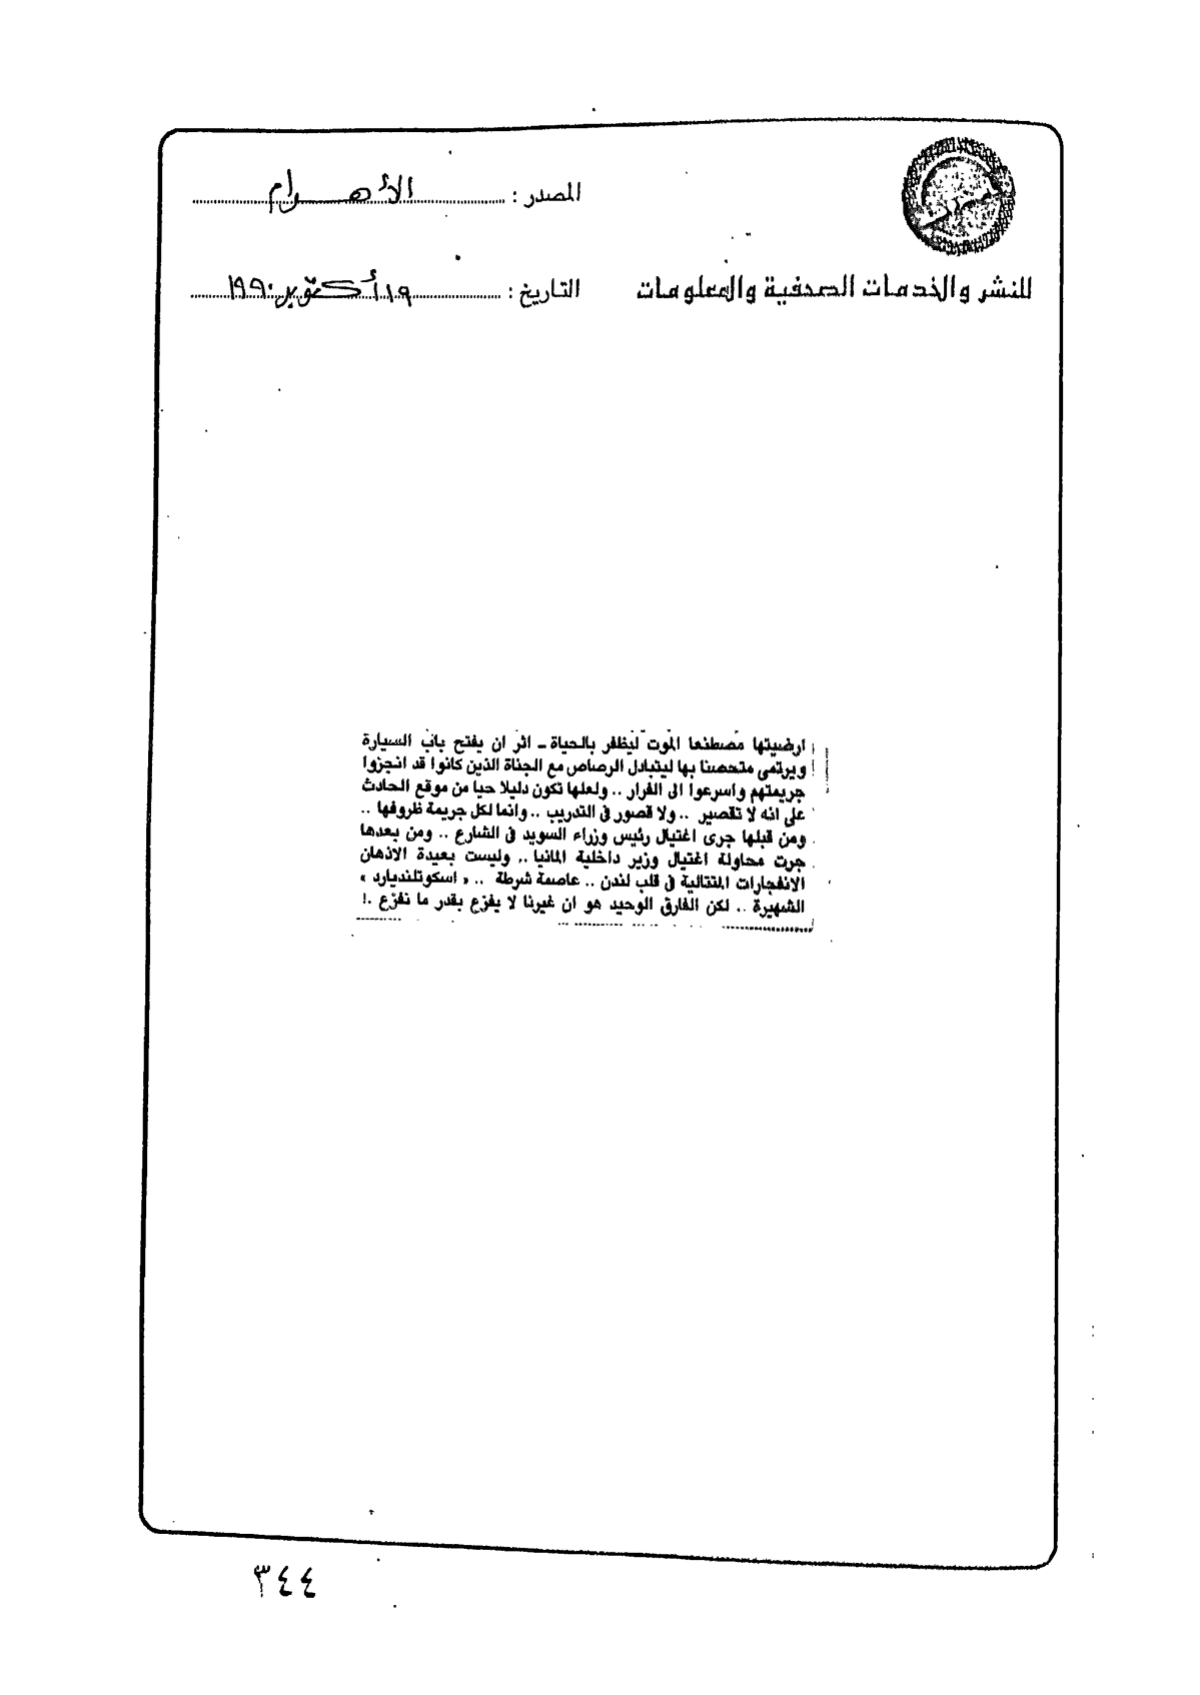 المصدر : الأهرام
للنشر والخدمات الصحفية والمعلومات
التاريخ : ١٩ أكتوبر ١٩٩٠
ارضيتها مصطنعا الموت ليظفر بالحياة ـ اثر ان يفتح باب السيارة
ويرتمى متحصنا بها ليتبادل الرصاص مع الجناة الذين كانوا قد انجزوا
جريمتهم واسرعوا الى الفرار .. ولعلها تكون دليلا حيا من موقع الحادث
على انه لا تقصير .. ولا قصور فى التدريب .. وانما لكل جريمة ظروفها ..
ومن قبلها جرى اغتيال رئيس وزراء السويد فى الشارع .. ومن بعدها
جرت محاولة اغتيال وزير داخلية المانيا .. وليست بعيدة الاذهان
الانفجارات المتتالية فى قلب لندن .. عاصمة شرطة .. « اسكوتلنديارد »
الشهيرة .. لكن الفارق الوحيد هو ان غيرنا لا يفزع بقدر ما نفزع .!
٣٤٤